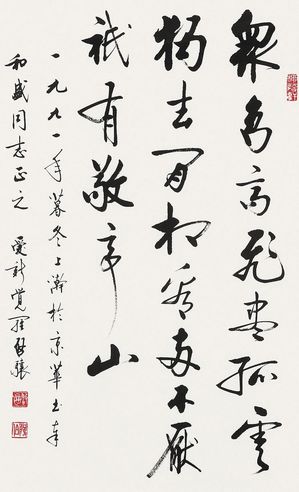 眾鳥高飛盡孤雲
獨去閒相看兩不厭
祇有敬亭山
一九九一年暮冬上澣於京華書奉
和盛同志正之 愛新覺羅啟驤